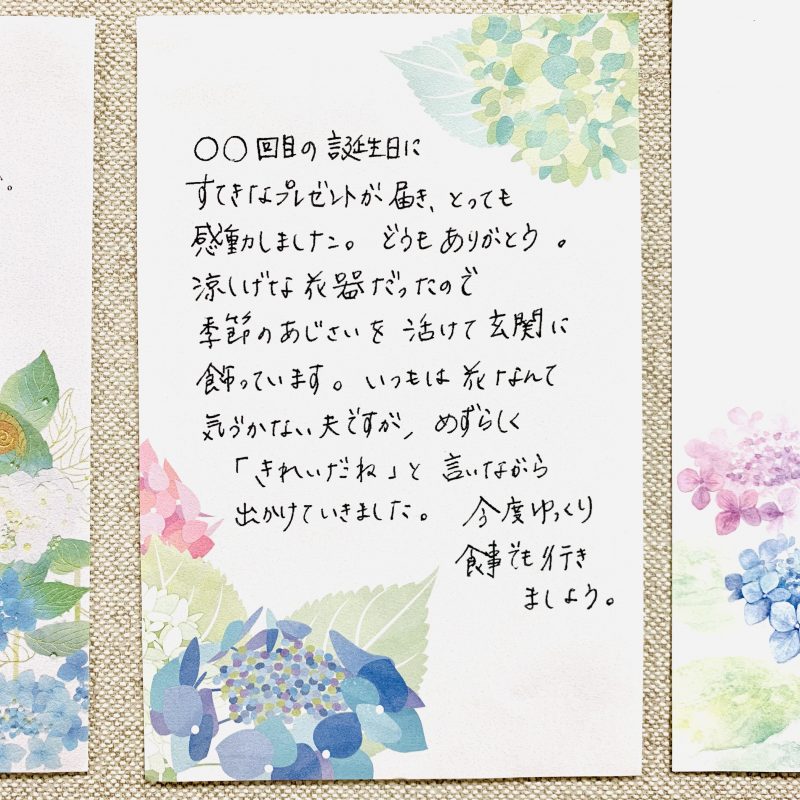 〇〇回目の誕生日に
すてきなプレゼントが届き、とっても
感動しました。どうもありがとう。
涼しげな花器だったので
季節のあじさいを活けて玄関に
飾っています。いつもは花なんて
気づかない夫ですが、めずらしく
「きれいだね」と言いながら
出かけていきました。今度ゆっくり
食事でも行き
ましょう。